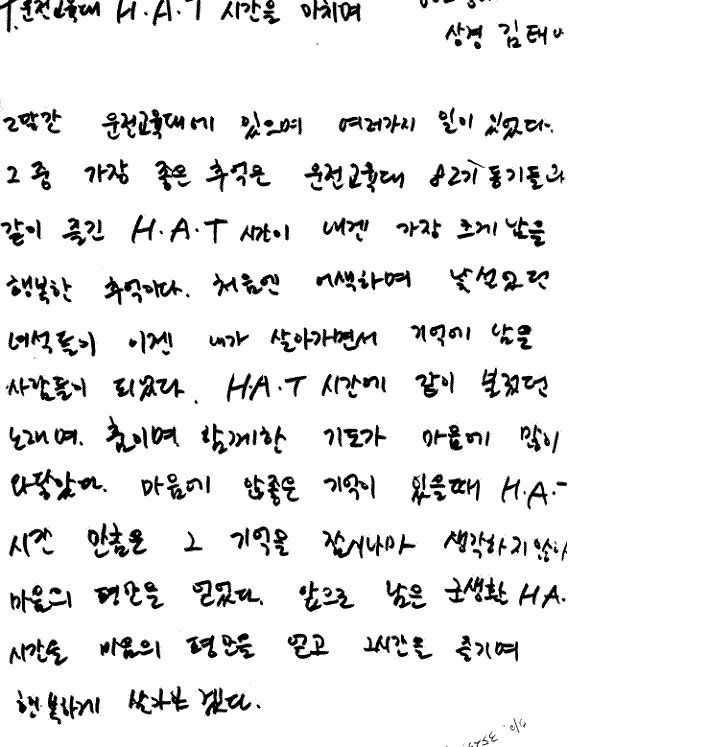 운전교육대 H.A.T 시간을 마치며
상경 김태
2달간 운전교육대에 있으며 여러가지 일이 있었다.
그 중 가장 좋은 추억은 운전교육대 82기 동기들과
같이 즐긴 H.A.T 시간이 내겐 가장 크게 남을
행복한 추억이다. 처음엔 어색하며 낯설었던
녀석들이 이젠 내가 살아가면서 기억에 남을
사람들이 되었다. H.A.T 시간에 같이 불렀던
노래며, 춤이며, 함께한 기도가 마음에 많이
와닿았다. 마음에 않좋은 기억이 있을때 H.A.
시간 만큼은 그 기억을 잠시나마 생각하지 않
마음의 평안을 얻었다. 앞으로 남은 군생활 H.A.
시간을 마음의 평안을 얻고 그시간을 즐기며
행복하게 살아봐야 겠다.